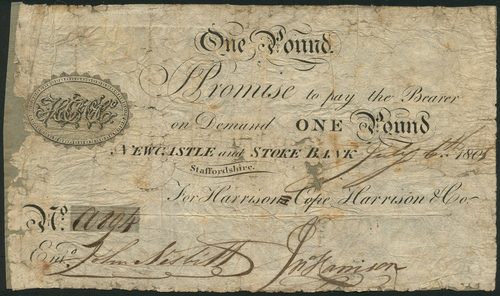 One Pound.
I Promise to pay the Bearer
on Demand ONE Pound
NEWCASTLE and STOKE BANK July 6th
Staffordshire.
For Harrison Cope Harrison & Co.
No.
Entd. John Nisbett Jno Harrison